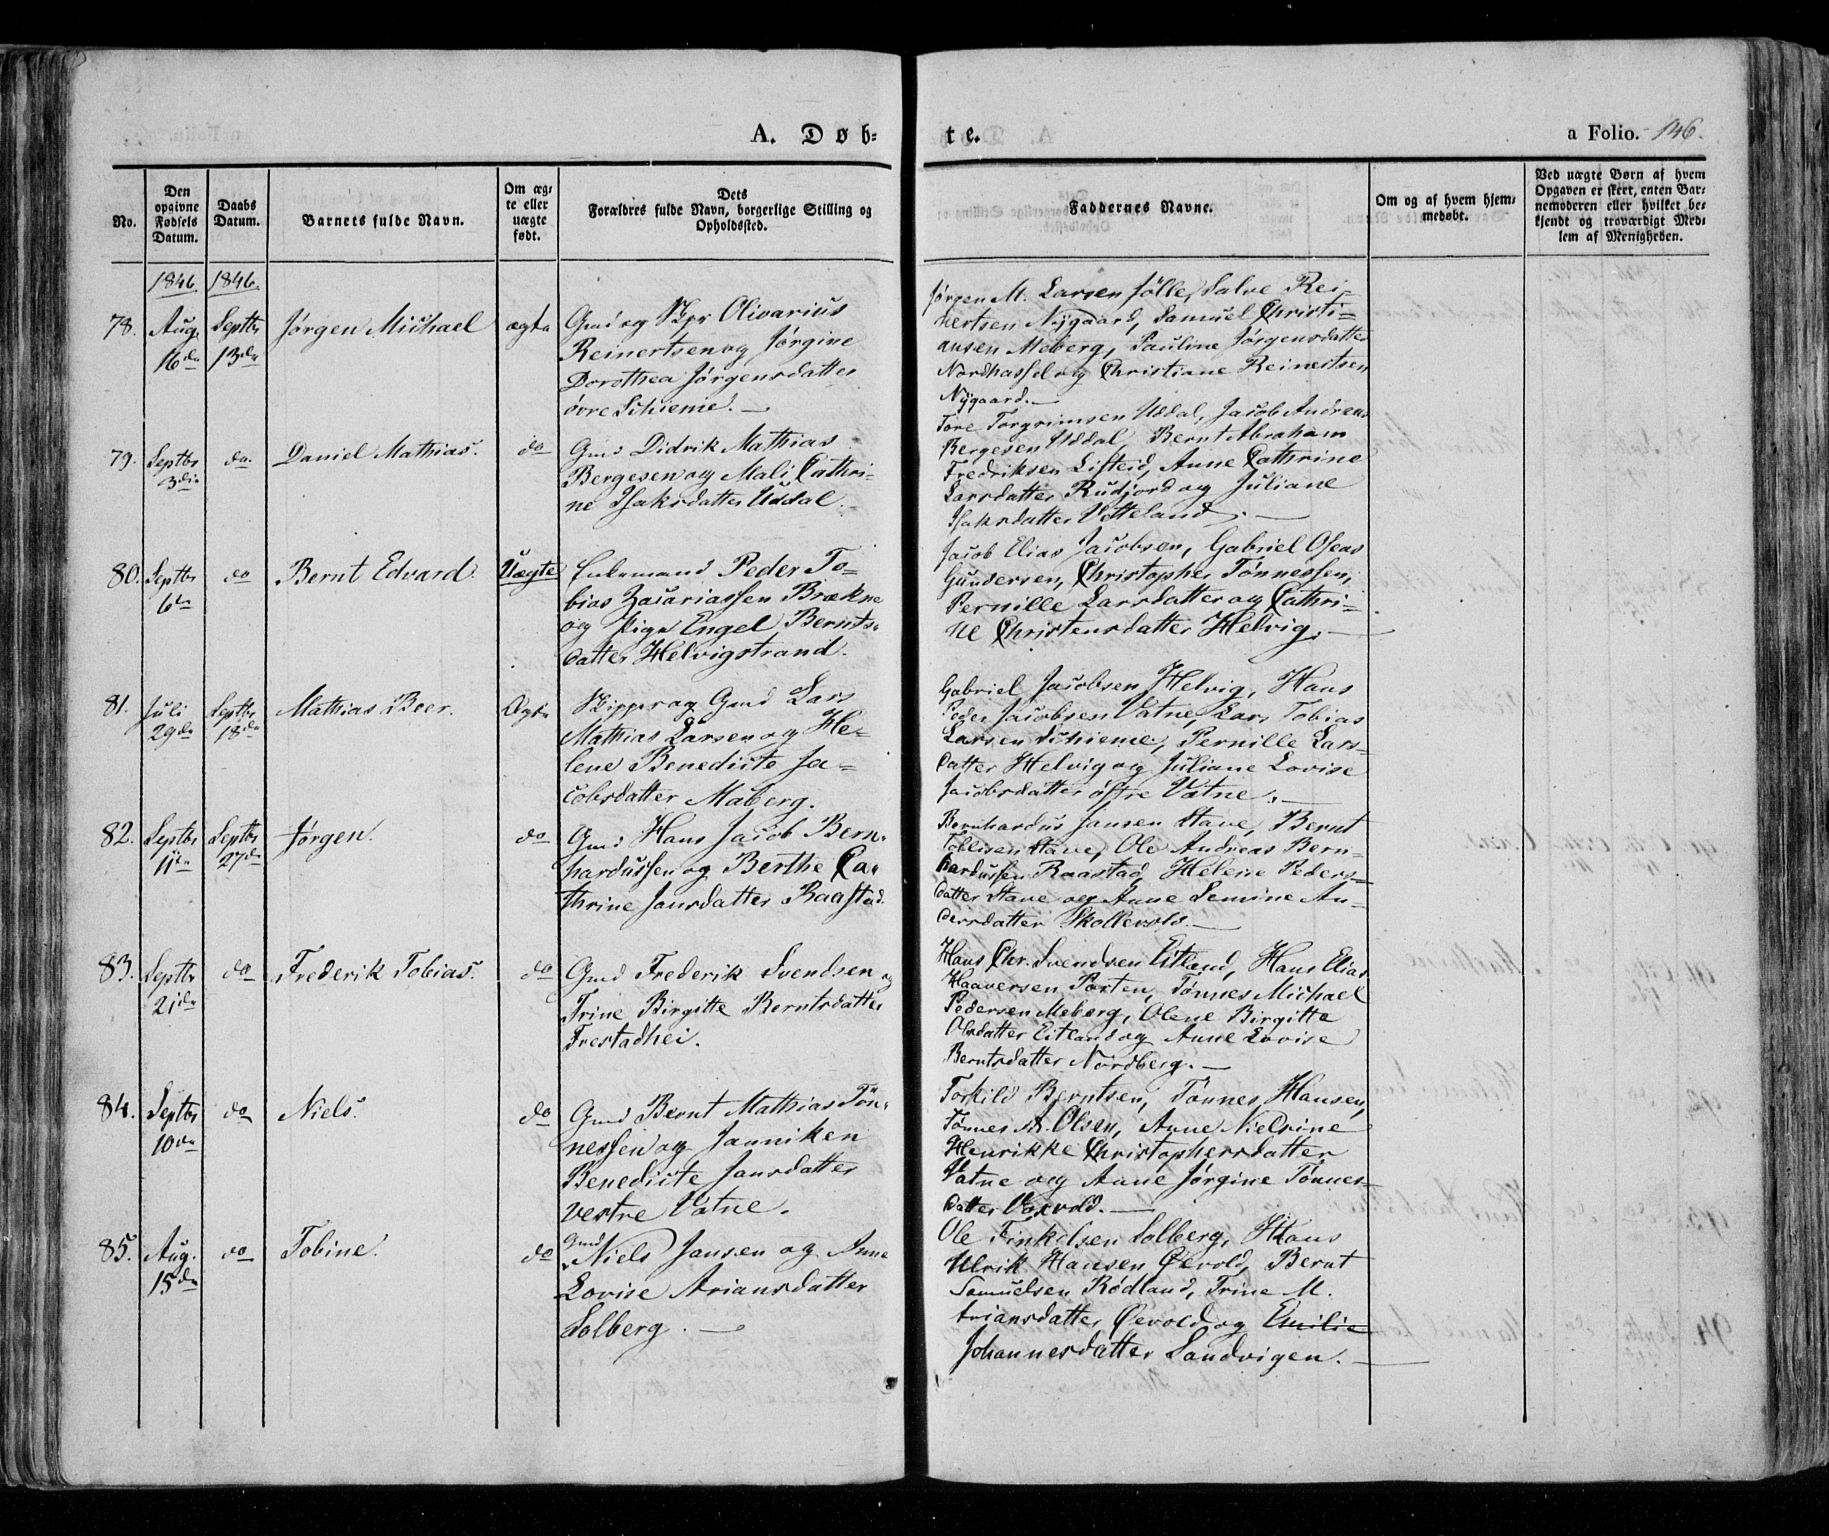 A. Døb-
te.
a Folio. 146.
No.
Den opgivne Fødsels Datum.
Daabs Datum.
Barnets fulde Navn.
Om ægte eller uægte født.
Dets Forældres fulde Navn, borgerlige Stilling og Opholdssted.
Faddernes Navne.
Om og af hvem hjemmedøbt.
Ved uægte Børn af hvem Opgaven er skeet, enten Barnemoderen eller hvilket bekjendt og troværdigt Medlem af Menigheden.
1846. 1846.
78. Aug. 16de Septbr 13de Jørgen Michael ægte
Gmd og Skpr Olivarius
Reinertsen og Jørgine
Dorothea Jørgensdatter
øvre Schieme. —
Jørgen M. Larsen Jølle, Salve Rei-
nertsen Nygaard, Samuel Christi-
ansen Meberg, Pauline Jørgensdatter
Nordhassel og Christiane Reinertsen
Nygaard. —
79. Septbr 3die do. Daniel Mathias. do
Gmd Didrik Mathias
Bergesen og Mali Cathri-
ne Isaksdatter Uddal. —
Tore Torgrimsen Uddal, Jacob Andreas
Bergesen Uddal, Bernt Abraham
Fredriksen Listeid, Anne Cathrine
Larsdatter Rudjord og Juliane
Isaksdatter Vetteland. —
80. Septbr 6te do Bernt Edvard. Uægte
Enkemand Peder To-
bias Zacariassen Brækne
og Pige Engel Bernts-
datter Helvigstrand.
Jacob Elias Jacobsen, Gabriel Oseas
Gundersen, Christopher Tønnessen,
Pernille Larsdatter og Cathri-
ne Christensdatter Helvig. —
81. Juli 29de Septbr 18de Mathias Beer. Ægte
Skipper og Gmd Lars
Mathias Larsen og He-
lene Benedicte Ja-
cobsdatter Maberg.
Gabriel Jacobsen Helvig, Hans
Peder Jacobsen Vatne, Lars Tobias
Larsen Schieme, Pernille Lars-
datter Helvig og Juliane Lovise
Jacobsdatter østre Vatne. —
82. Septbr 11te Septbr 27de Jørgen. do
Gmd Hans Jacob Bern-
hardussen og Berthe Ca-
thrine Jansdatter Raastad.
Bernhardus Jansen Stave, Bernt
Tollisen Stave, Ole Andreas Bern-
hardussen Raastad, Helene Peders-
datter Stave og Anne Semine An-
dersdatter Skollevold. —
83. Septbr 21de do Frederik Tobias. do
Gmd Frederik Svendsen og
Trine Birgitte Berntsdatter
Frestadhei.
Hans Chr. Svendsen Eitland, Hans Elias
Haaversen Porten, Tønnes Michael
Pedersen Meberg, Olene Birgitte
Olsdatter Eitland og Anne Lovise
Berntsdatter Nordberg. —
84. Septbr 10de do Niels. do
Gmd Bernt Mathias Tøn-
nessen og Janniken
Benedicte Jansdatter
vestre Vatne.
Torkild Berntsen, Tønnes Hansen,
Tønnes A. Olsen, Anne Nielsine
Henrikke Christophersdatter
Vatne og Anne Jørgine Tønnes-
datter Varvold. —
85. Aug. 15de do Tobine. do
Gmd Niels Jansen og Anne
Lovise Ariansdatter
Solberg. —
Ole Finkelsen Solberg, Hans
Ulrik Hansen Øevold, Bernt
Samuelsen Rødland, Trine M.
Ariansdatter Øevold og Emilie
Johannesdatter Sandvigen. —